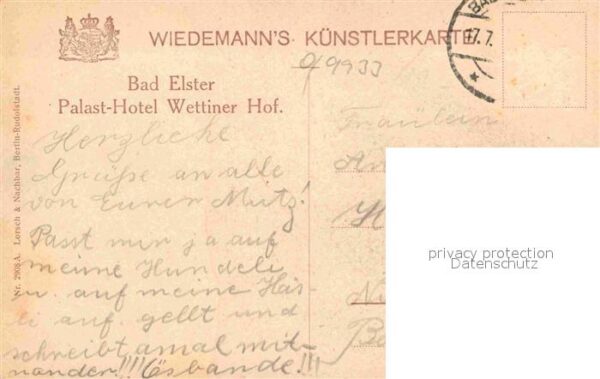 WIEDEMANN'S KÜNSTLERKARTE
BAD
17.7.
0/9933
Bad Elster
Palast-Hotel Wettiner Hof.
Nr. 2908 A. Lorsch & Nachbar, Berlin-Rudolstadt.
Herzliche
Grüße an alle
von Eurer Mutz!
Passt mir ja auf
meine Hundeli
u. auf meine Häs-
li auf. gellt und
schreibt amal mit-
nander!!!! Ösbande!!!
Fräulein
privacy protection
Datenschutz